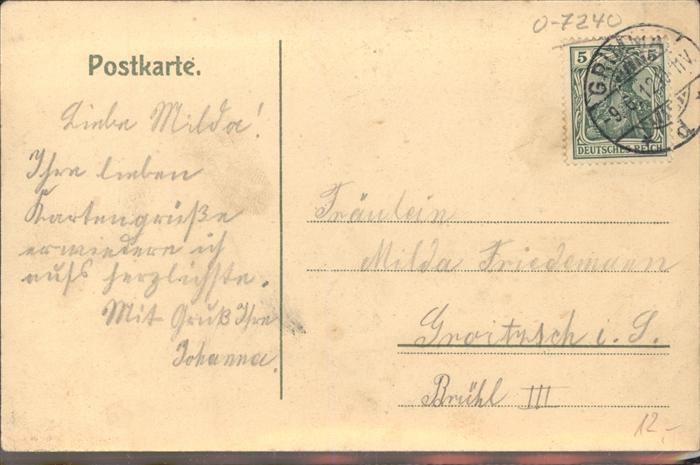 0-7240
Postkarte.
5
DEUTSCHES REICH
Liebe Milda!
Ihre lieben
Kartengrüße
erwiedere ich
aufs herzlichste.
Mit Gruß Ihre
Johanna.
Fräulein
Milda Friedemann
Groitzsch i. S.
Brühl III
12.-